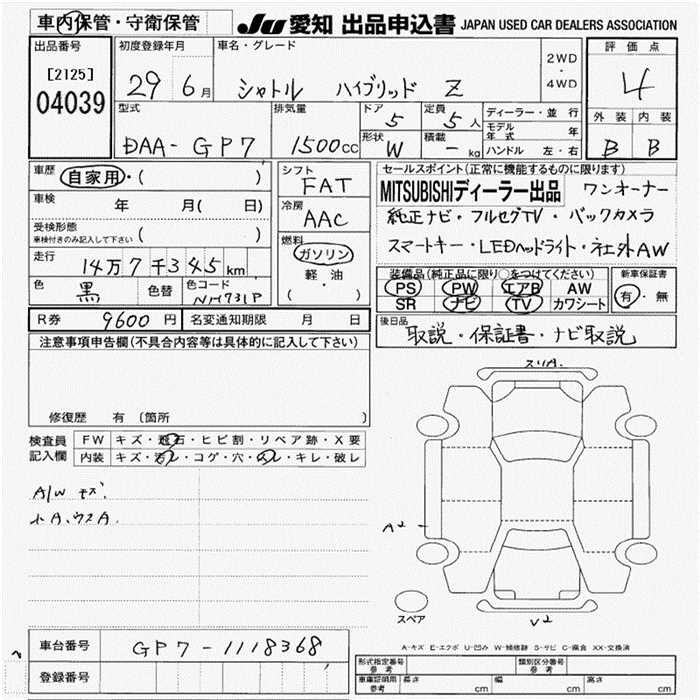 車内保管・守衛保管
JU 愛知 出品申込書 JAPAN USED CAR DEALERS ASSOCIATION
出品番号 初度登録年月 車名・グレード 評価点
[2125]
04039
29 6月 シャトル ハイブリッド Z
2WD
・
4WD
4
型式 排気量 ドア 定員 ディーラー・並行 外装 内装
DAA-GP7 1500cc 5 5人
形状 積載 モデル年式 年
W - kg ハンドル 左・右
B B
車歴 自家用・( )
シフト
FAT
セールスポイント(正常に機能するものに限ります)
MITSUBISHIディーラー出品 ワンオーナー
車検 年 月( 日)
冷房
AAC
純正ナビ・フルセグTV・バックカメラ
受検形態
車検付きのみ記入して下さい ( )
燃料
ガソリン
軽・油
( ・ )
スマートキー・LEDヘッドライト・社外AW
走行 14万7千345km
装備品(純正品に限り○をつけてください) 新車保証書
色 黒 色替 色コード NH731P
PS PW エアB AW 有・無
SR ナビ TV カワシート
R券 9600円 名変通知期限 月 日
後日品
取説・保証書・ナビ取説
注意事項申告欄(不具合内容等は具体的に記入して下さい)
修復歴 有〔箇所
検査員 FW キズ・飛石・ヒビ割・リペア跡・X要
記入欄 内装 キズ・汚レ・コゲ・穴・スレ・キレ・破レ
A/W キズ.
小A.ウスA.
スリA.
A2
スペア
V2
A-キズ E-エクボ U-凹み W-補修跡 S-サビ C-腐食 XX-交換済
車台番号 GP7-1118368
登録番号
形式指定番号 参考 類別区分番号 参考
車庫証明用 参考 長さ cm 幅 cm 高さ cm